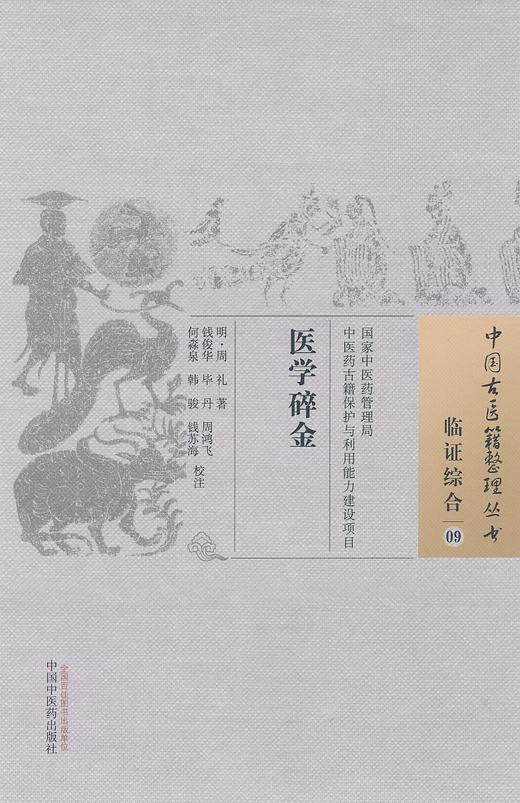 中国古医籍整理丛书
临证综合
09
国家中医药管理局
中医药古籍保护与利用能力建设项目
医学碎金
明·周 礼 著
钱俊华 毕 丹 周鸿飞
何森泉 韩 骏 钱苏海 校注
全国百佳图书出版单位
中国中医药出版社